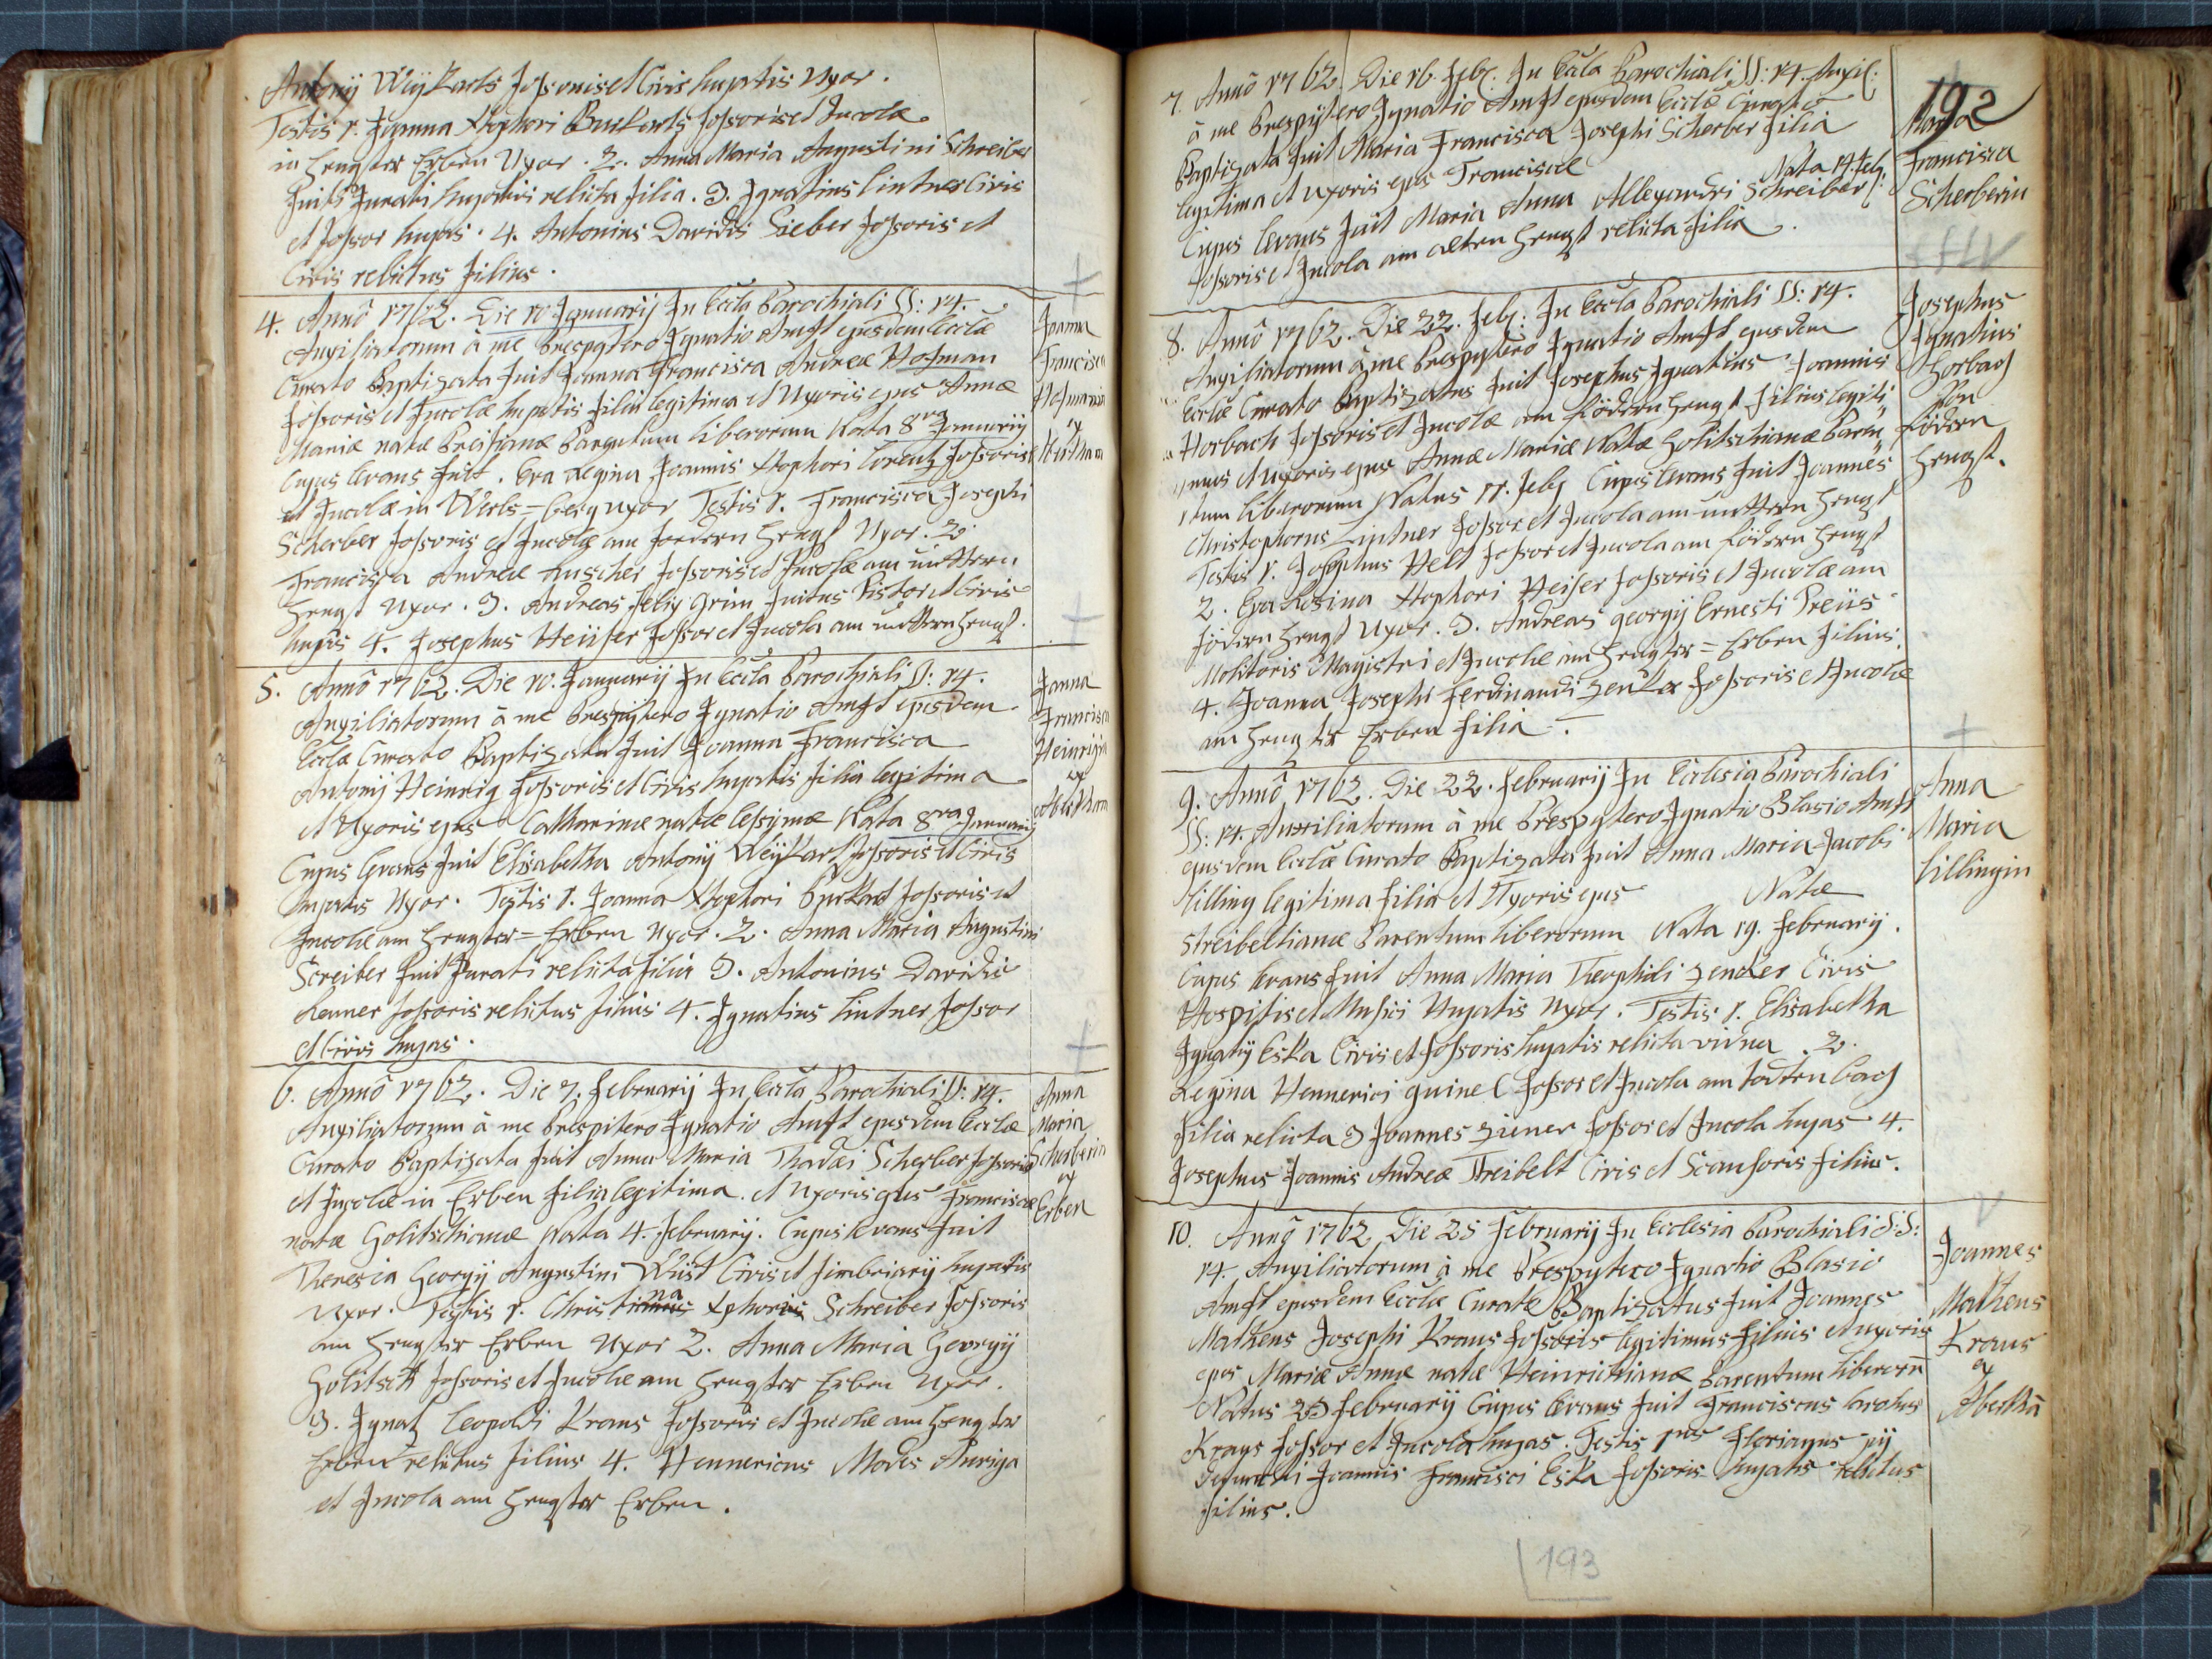 Antonij Weÿkarts Fossoris et Civis hujatis Uxor.
Testis 1. Joanna Xtophori Burkerts Fossoris et Incolæ
in Hengster Erben Uxor. 2. Anna Maria Augustini Schreiber
Jurati hujatis relicta filia. 3. Ignatius Lintner Civis
et Fossor hujas. 4. Antonius Davidis Fossoris et
Civis relictus filius.
4. Annô 1762. Die 10 Januarij In Eccla Parochiali SS: 14.
Auxiliatorum à me Prespytero Ignatio Amft ejusdem Ecclæ
Curato Baptizata fuit Joanna Francisca Andreæ Hofman
Fossoris et Incolæ hujatis filia legitima et Uxoris ejus Annæ
Mariæ natæ Parentum liberorum Nata 8va Januarij
Cujus levans fuit. Eva Regina Joannis Xtophori Lorentz Fossoris
et Incolæ in Werls=berg uxor Testis 1. Francisca Josephi
Scherber Fossoris et Incolæ am foedern Hengst Uxor. 2
Francisca Andreæ Fossoris et Incolæ am mittern
Hengst Uxor. 3. Andreas Felix Grim Pistor et Civis
hujus 4. Josephus Heüser Fossor et Incola am mittern Hengst.
Joanna
Francisca
Hofmanin
ex
Abertham
5. Annô 1762. Die 10. Januarij In Eccla Parochiali SS: 14.
Auxiliatorum à me Prespytero Ignatio Amft ejusdem
Ecclæ Curato Baptizata fuit Joanna Francisca
Antonij Heinrig Fossoris et Civis hujatis filia legitima
et Uxoris ejus Catharinæ natæ Nata 8va Januarij
Cujus levans fuit Elisabetha Antonij Weÿkart Fossoris et Civis
hujatis Uxor. Testis 1. Joanna Xtophori Burkart Fossoris et
Incolæ am Hengster=Erben Uxor. 2. Anna Maria Augustini
Screiber fuit Jurati relicta filia 3. Antonius Davidis
Renner Fossoris relictus filius 4. Ignatius Lintner Fossor
et Civis hujas.
Joanna
Francisca
Heinrigin
ex
Abertham
6. Annô 1762. Die 7. Februarij In Eccla Parochiali SS: 14.
Auxiliatorum à me Prespitero Ignatio Amft ejusdem Ecclæ
Curato Baptizata fuit Anna Maria Thadæi Scherber Fossoris
et Incolæ in Erben filia legitima. et Uxoris ejus Franciscæ
natæ Golitschianæ Nata 4. Februarij. Cujus levans fuit
Theresia Georgij Augustini Wüst Civis et Fimbriarij hujatis
Uxor. Testis 1. Christiana Xphoris Schreiber Fossoris
am Hengster Erben Uxor 2. Anna Maria Georgij
Golitsch Fossoris et Incolæ am Hengster Erben Uxor.
3. Ignatz Leopoldi Kraus Fossoris et Incolæ am Hengster
Erben relictus filius 4. Hennericus Modes Auriga
et Incola am Hengster Erben.
Anna
Maria
Scherberin
ex
Erben
192
7. Annô 1762. Die 16. Feb. In Eccla Parochiali SS: 14. Auxil:
à me Prespytero Ignatio Amft ejusdem Ecclæ Curato
Baptizata fuit Maria Francisca Josephi Scherber filia
legitima et Uxoris ejus Franciscæ Nata 14. Feb.
Cujus levans fuit Maria Anna Allexandri Schreiber
Fossoris et Incola am alten Hengst relicta filia.
Maria
Francisca
Scherberin
8. Annô 1762. Die 22. Feb: In Eccla Parochiali SS: 14.
Auxiliatorum à me Prespytero Ignatio Amft ejusdem
Ecclæ Curato Baptizatus fuit Josephus Ignatius Joannis
Horbach Fossoris et Incolæ am födern Hengst filius legiti
mus et Uxoris ejus Annæ Mariæ Natæ Golitschianæ Paren
tum liberorum Natus Feb Cujus levans fuit Joannes
Christophorus Lintner Fossor et Incola am mittern Hengst
Testis 1. Josephus Helt Fossor et Incola am födern Hengst
2. Eva Rosina Xtophori Heiser Fossoris et Incolæ am
födern Hengst Uxor. 3. Andreas Georgij Ernesti Preüs
Molitoris Magistri et Incolæ am Hengster=Erben filius.
4. Joanna Josephi Ferdinandi Zenker Fossoris et Incolæ
am Hengster Erben filia.
Josephus
Ignatius
Horbach
Von
födern
Hengst.
9. Annô 1762. Die 22. Februarij In Ecclesia Parochiali
SS: 14. Auxiliatorum à me Prespytero Ignatio Blasio Amft
ejusdem Ecclæ Curato Baptizata fuit Anna Maria Jacobi
Lilling legitima filia et Uxoris ejus Natæ
Streibeltianæ Parentum liberorum Nata 19. Februarij.
Cujus levans fuit Anna Maria Theophili Zenker Civis
Hospitis et Musici Hujatis Uxor. Testis 1. Elisabetha
Ignatij Eska Civis et Fossoris hujatis relicta vidua. 2.
Regina Hennerici Fossor et Incola am
filia relicta 3 Joannes Ziener Fossor et Incola hujas 4.
Josephus Joannis Andreæ Streibelt Civis et Scansoris filius.
Anna
Maria
Lillingin
10. Annô 1762 Die 25 Februarij In Ecclesia Parochiali S:S:
14. Auxiliatorum à me Prespytero Ignatio Blasio
Amft ejusdem Ecclæ Curato Baptizatus fuit Joannes
Matheus Josephi Kraus Fossoris legitimus filius et uxoris
ejus Mariæ Annæ natæ Heinrichianæ Parentum liberorū
Natus 23 Februarij Cujus levans fuit Franciscus Carolus
Kraus Fossor et Incola hujas. Testis 1mus Florianus pij
Defuncti Joannis Francisci Eska Fossoris hujatis relictus
filius.
Joannes
Matheus
Kraus
ex
Abertha
193